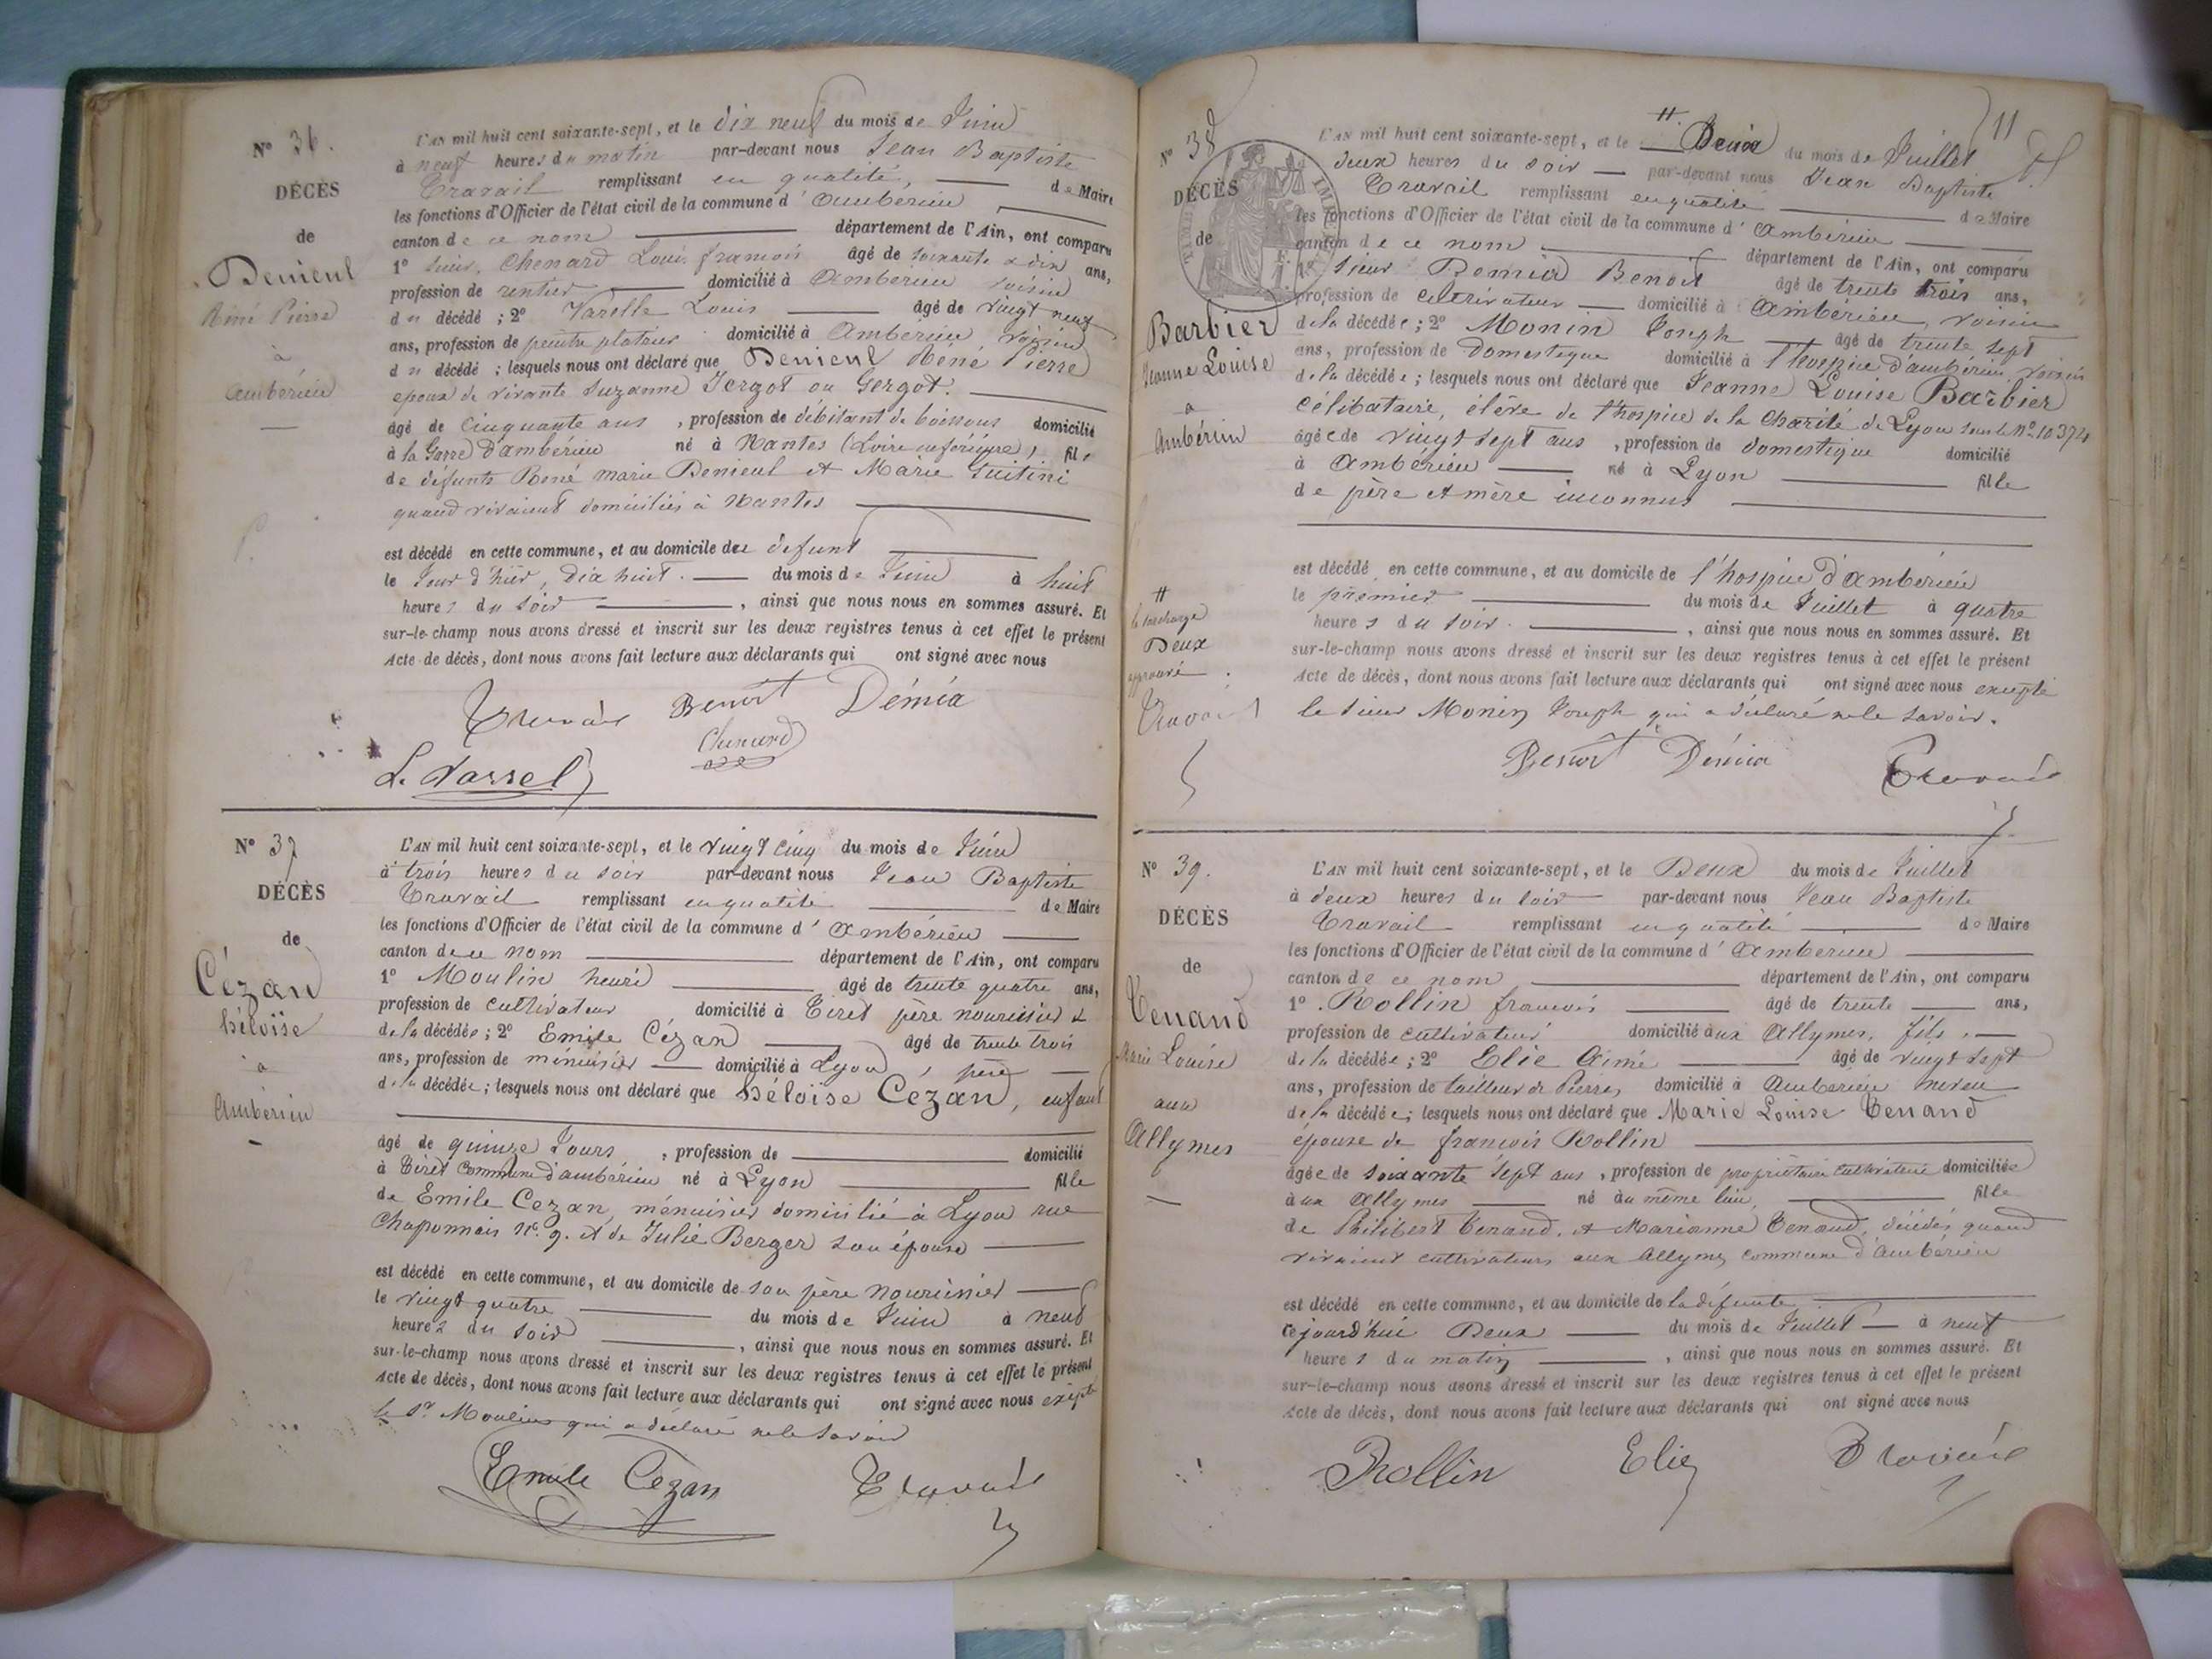 N° 36.
DÉCÈS
de
Denieul
Réné Pierre
à
Ambérieu
L'AN mil huit cent soixante-sept, et le dix neuf du mois de Juin
à neuf heures du matin par-devant nous Jean Baptiste
Travail remplissant en qualité, de Maire
les fonctions d'Officier de l'état civil de la commune d'Ambérieu
canton de ce nom département de l'Ain, ont comparu
1° sieur Chenard Louis françois âgé de soixante & dix ans,
profession de rentier domicilié à Ambérieu voisin
du décédé ; 2° Varelle Louis âgé de vingt neuf
ans, profession de peintre platrier domicilié à Ambérieu voisin
du décédé ; lesquels nous ont déclaré que Denieul Réné Pierre
epoux de vivante Suzanne Jergot ou Gergot.
âgé de cinquante ans, profession de débitant de boissons domicilié
à la Gare d'ambérieu né à Nantes (Loire inférieure) fils
de défunts Réné marie Denieul et Marie Guitini
quand vivaient domiciliés à Nantes
est décédé en cette commune, et au domicile du defunt
le Jour d'hier, Dix huit. du mois de Juin à huit
heures du soir, ainsi que nous nous en sommes assuré. Et
sur-le-champ nous avons dressé et inscrit sur les deux registres tenus à cet effet le présent
Acte de décès, dont nous avons fait lecture aux déclarants qui ont signé avec nous
Travail Benoit Démia
Chenard
L. Varrel
N° 37
DÉCÈS
de
Cézan
héloïse
à
Ambérieu
L'AN mil huit cent soixante-sept, et le vingt cinq du mois de Juin
à trois heures du soir par-devant nous Jean Baptiste
Travail remplissant en qualité de Maire
les fonctions d'Officier de l'état civil de la commune d'Ambérieu
canton de ce nom département de l'Ain, ont comparu
1° Moulin henri âgé de trente quatre ans,
profession de cultivateur domicilié à Tiret père nourricier
de la décédée ; 2° Emile Cézan âgé de trente trois
ans, profession de menuisier domicilié à Lyon, père
de la décédée ; lesquels nous ont déclaré que héloïse Cézan, enfant
âgé de quinze Jours, profession de domicilié
à Tiret Commune d'ambérieu né à Lyon fille
de Emile Cezan, ménuisier domicilié à Lyon rue
Chaponnais N°. 9. et de Julie Berger son épouse
est décédé en cette commune, et au domicile de son père nourricier
le vingt quatre du mois de Juin à neuf
heures du soir, ainsi que nous nous en sommes assuré. Et
sur-le-champ nous avons dressé et inscrit sur les deux registres tenus à cet effet le présent
Acte de décès, dont nous avons fait lecture aux déclarants qui ont signé avec nous excepté
le Sr Moulin qui a déclaré ne le savoir
Emile Cezan Travail
11
N° 38
DÉCÈS
de
Barbier
Jeanne Louise
à
Ambérieu
L'AN mil huit cent soixante-sept, et le # Deux du mois de Juillet
deux heures du soir par-devant nous Jean Baptiste
Travail remplissant en qualité de Maire
les fonctions d'Officier de l'état civil de la commune d'Ambérieu
canton de ce nom département de l'Ain, ont comparu
1° sieur Demia Benoit âgé de trente trois ans,
profession de cultivateur domicilié à Ambérieu, voisin
de la décédée ; 2° Monin Joseph âgé de trente sept
ans, profession de Domestique domicilié à l'hospice d'ambérieu voisin
de la décédée ; lesquels nous ont déclaré que Jeanne Louise Barbier
célibataire, élève de l'hospice de la Charité de Lyon sous le N° 10374
âgée de vingt sept ans, profession de domestique domicilié
à Ambérieu né à Lyon fille
de père et mère inconnus
est décédé en cette commune, et au domicile de l'hospice d'Ambérieu
le premier du mois de Juillet à quatre
heures du soir, ainsi que nous nous en sommes assuré. Et
sur-le-champ nous avons dressé et inscrit sur les deux registres tenus à cet effet le présent
Acte de décès, dont nous avons fait lecture aux déclarants qui ont signé avec nous excepté
le sieur Monin Joseph qui a déclaré ne le savoir.
#
la surcharge
Deux
approuvé
Travail
Benoit Démia Travail
N° 39.
DÉCÈS
de
Tenand
Marie Louise
aux
Allymes
L'AN mil huit cent soixante-sept, et le Deux du mois de Juillet
à deux heures du soir par-devant nous Jean Baptiste
Travail remplissant en qualité de Maire
les fonctions d'Officier de l'état civil de la commune d'Ambérieu
canton de ce nom département de l'Ain, ont comparu
1° Rollin françois âgé de trente ans,
profession de cultivateur domicilié aux Allymes, fils
de la décédée ; 2° Elie Aimé âgé de vingt sept
ans, profession de tailleur de Pierres domicilié à Ambérieu neveu
de la décédée ; lesquels nous ont déclaré que Marie Louise Tenand
épouse de françois Rollin
âgée de soixante sept ans, profession de propriétaire cultivatrice domiciliée
aux Allymes né au même lieu, fille
de Philibert Tenand, et Marianne Tenand, décédés quand
vivaient cultivateurs aux Allymes commune d'Ambérieu
est décédé en cette commune, et au domicile de la défunte
cejourd'hui Deux du mois de Juillet à neuf
heures du matin, ainsi que nous nous en sommes assuré. Et
sur-le-champ nous avons dressé et inscrit sur les deux registres tenus à cet effet le présent
Acte de décès, dont nous avons fait lecture aux déclarants qui ont signé avec nous
Rollin Elie Travail